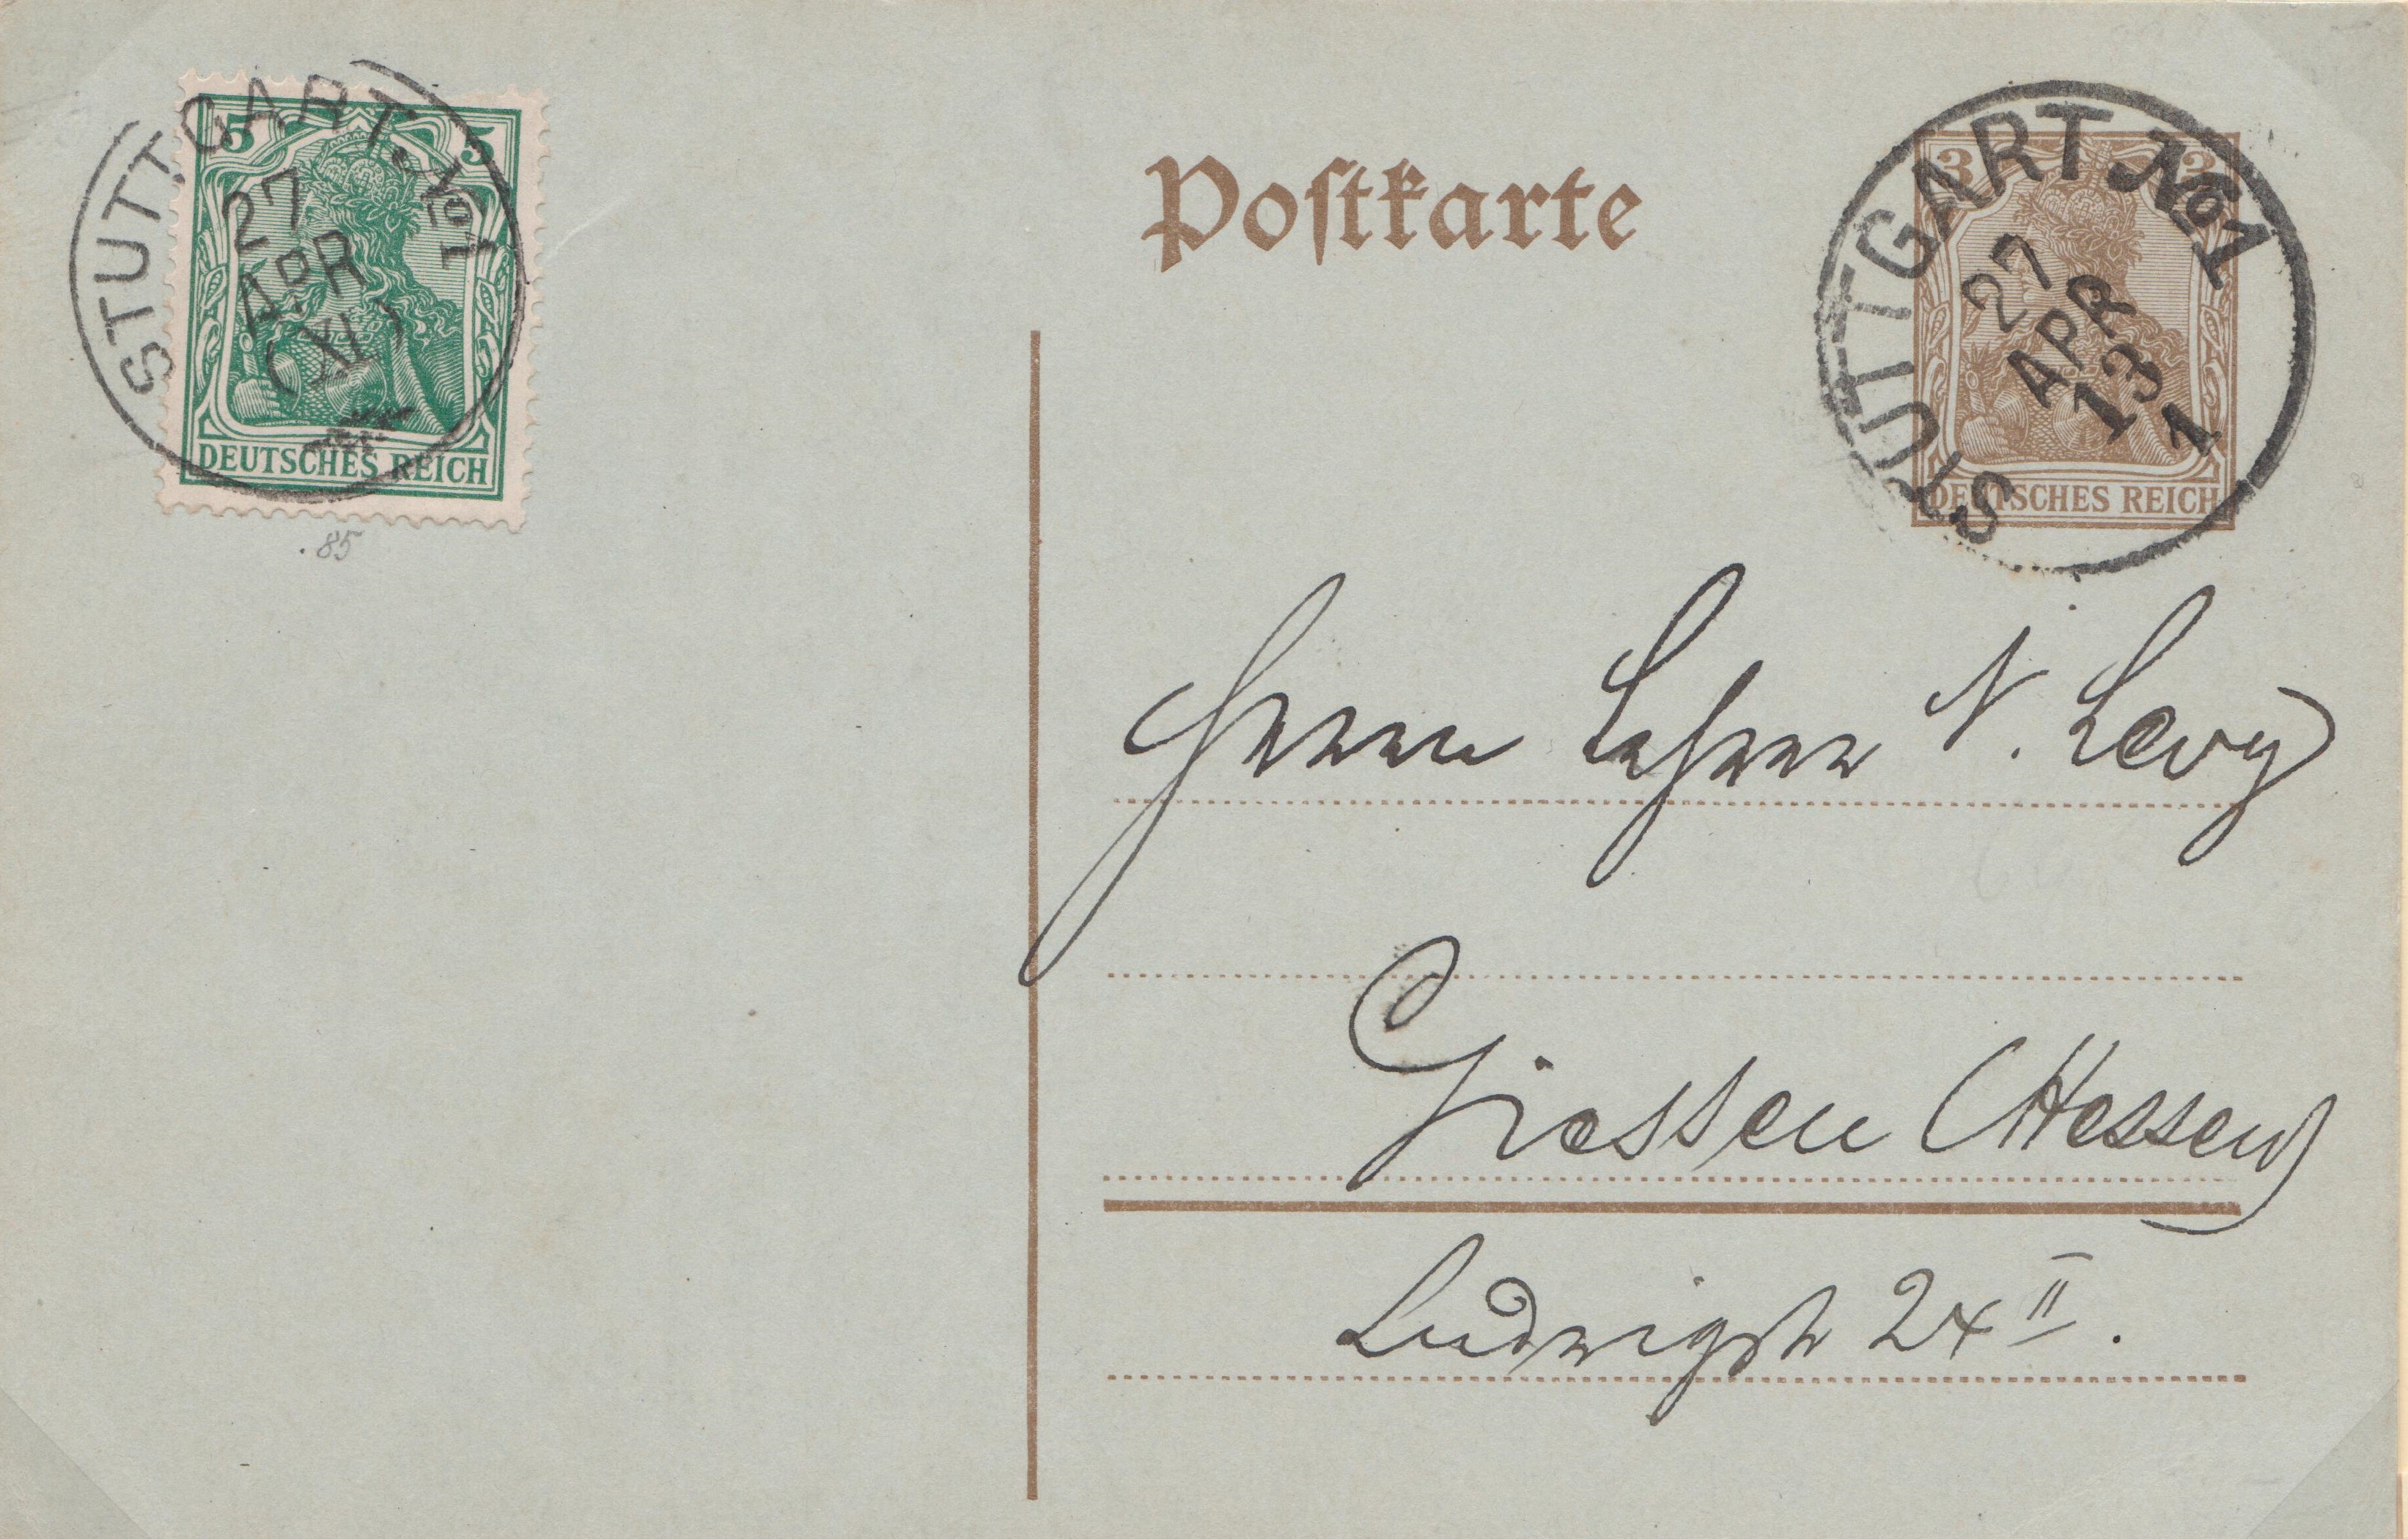 5 5
STUTTGART. No 1
27
APR
(XI)
DEUTSCHES REICH
.85
Postkarte
3 3
STUTTGART No 1
27
APR
13
1
DEUTSCHES REICH
Herrn Lehrer N. Levy
Giessen (Hessen)
Ludwigstr 24 II.